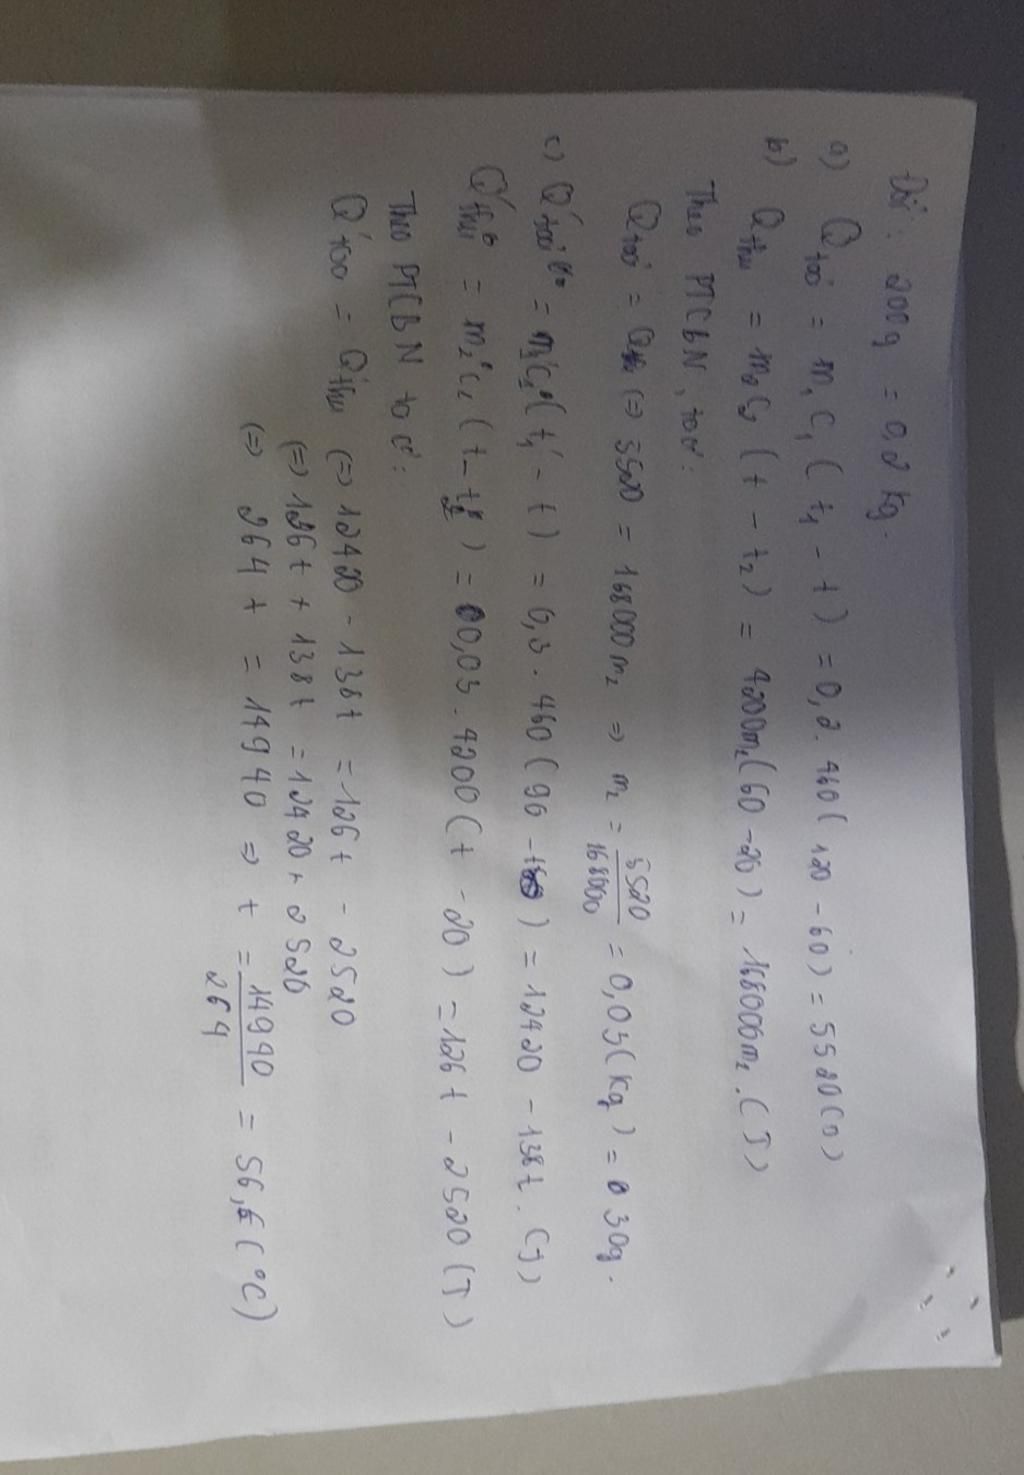 Đổi: 200g = 0,2 kg.
a) Qtoả = m₁C₁(t₁ - t) = 0,2. 460(120 - 60) = 5520(J)
b) Qthu = m₂C₂(t - t₂) = 4200m₂(60 - 20) = 168000m₂.(J)
Theo PTCBN, ta có:
Qtoả = Qthu (=) 5520 = 168000m₂ => m₂ = 5520/168000 = 0,03(kg) = 30g.
c) Q'toả = m₁'C₁(t₁' - t) = 0,3. 460(90 - t) = 12420 - 138t. (J)
Q'thu = m₂'C₂(t - t₂) = 0,03. 4200(t - 20) = 126t - 2520(J)
Theo PTCBN ta có:
Q'toả = Q'thu (=) 12420 - 138t = 126t - 2520
(=) 126t + 138t = 12420 + 2520
(=) 264t = 14940 => t = 14940/264 = 56,6(°C)